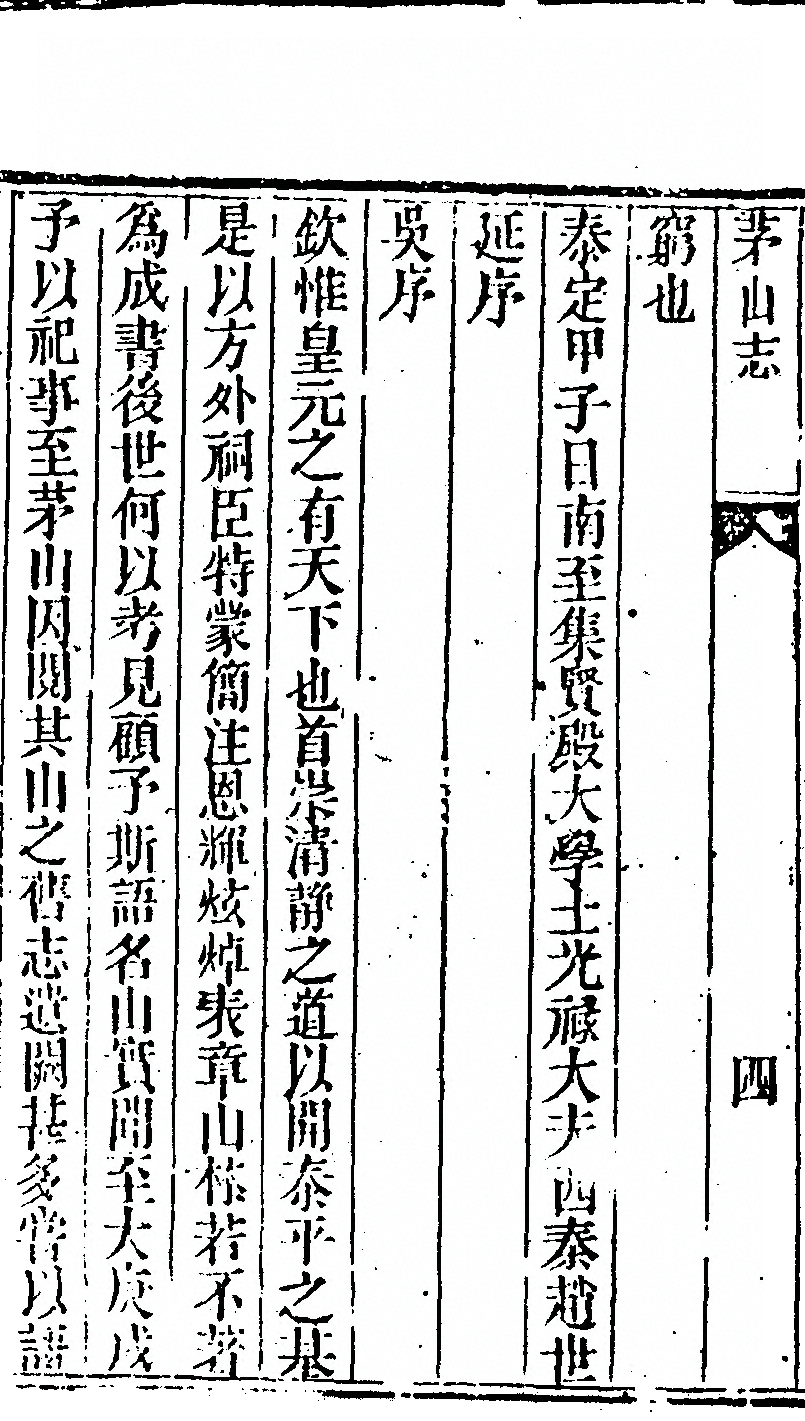 茅山志
四
窮也
泰定甲子日南至集賢殿大學士光祿大夫西秦趙世
延序
吳序
欽惟皇元之有天下也首崇清靜之道以開泰平之基
是以方外祠臣特蒙簡注恩輝炫焯表章山栋若不著
為成書後世何以考見顧予斯語名山實聞至大庚戌
予以祀事至茅山因閱其山之舊志遺闕甚多嘗以語